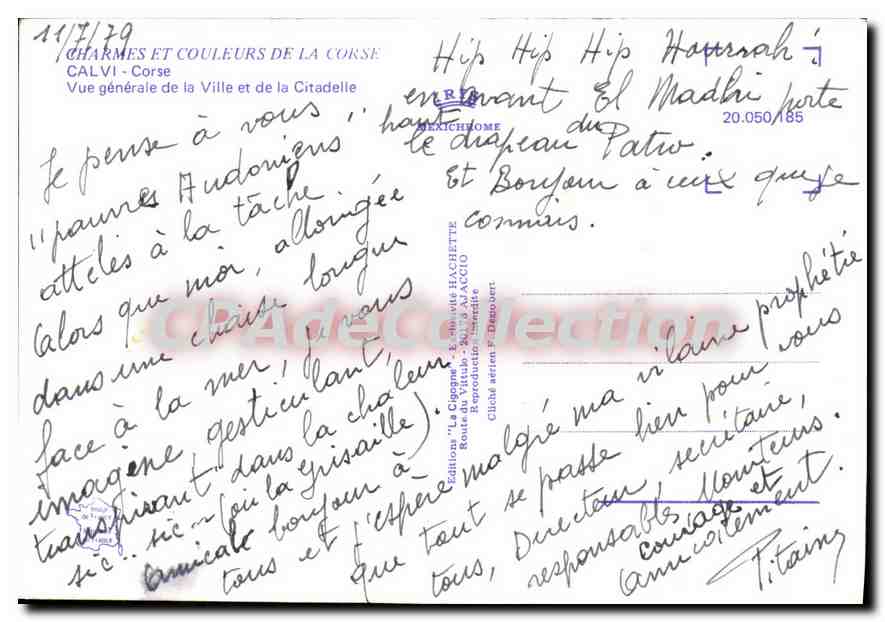 11/7/79
CHARMES ET COULEURS DE LA CORSE
CALVI - Corse
Vue générale de la Ville et de la Citadelle
IRIS
MEXICHROME
20.050/185
Je pense à vous
"pauvres Audoniens"
attelés à la tâche.
(alors que moi, allongée
dans une chaise longue
face à la mer, je vous
imagine, gesticulant,
transpirant dans la chaleur
sic.. sic ~ (ou la grisaille).
Amicale bonjour à
tous et j'espère malgré ma vilaine prophétie
que tout se passe bien pour vous
tous, Directeur, secrétaire,
responsables Moniteurs.
courage et
Amicalement.
Hip Hip Hip Hourrah!
en avant El Madhi porte
haut
le drapeau du Patro.
Et Bonjour à ceux que je
connais.
Editions "La Cigogne" - Exclusivité HACHETTE
Route du Vittulo - 20176 AJACCIO
Reproduction Interdite
Cliché aérien F. Dezobert
CPAdeCollection